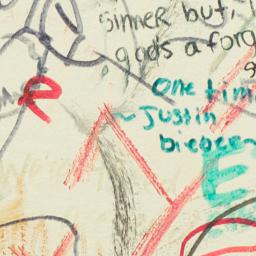 sinner but,
gods a forg
One tim
~Justin
bieber
E